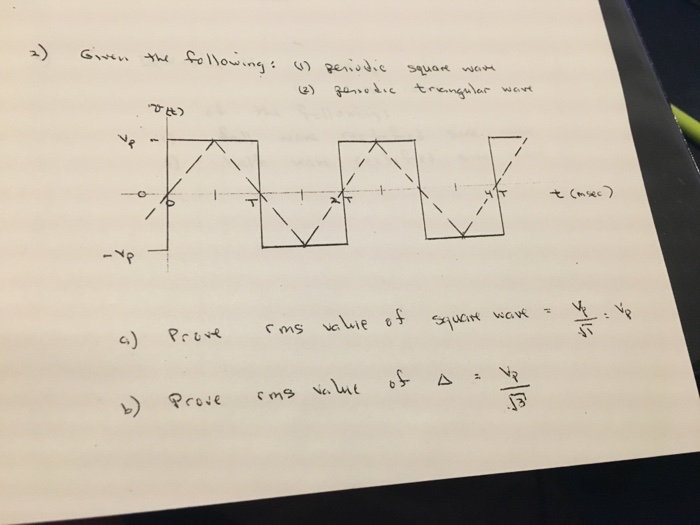 2) Given the following: (1) periodic square wave
(2) periodic triangular wave
v(t)
Vp
0 0 T 2T 4T t (msec)
-Vp
a) Prove rms value of square wave = Vp/√1 = Vp
b) Prove rms value of Δ = Vp/√3